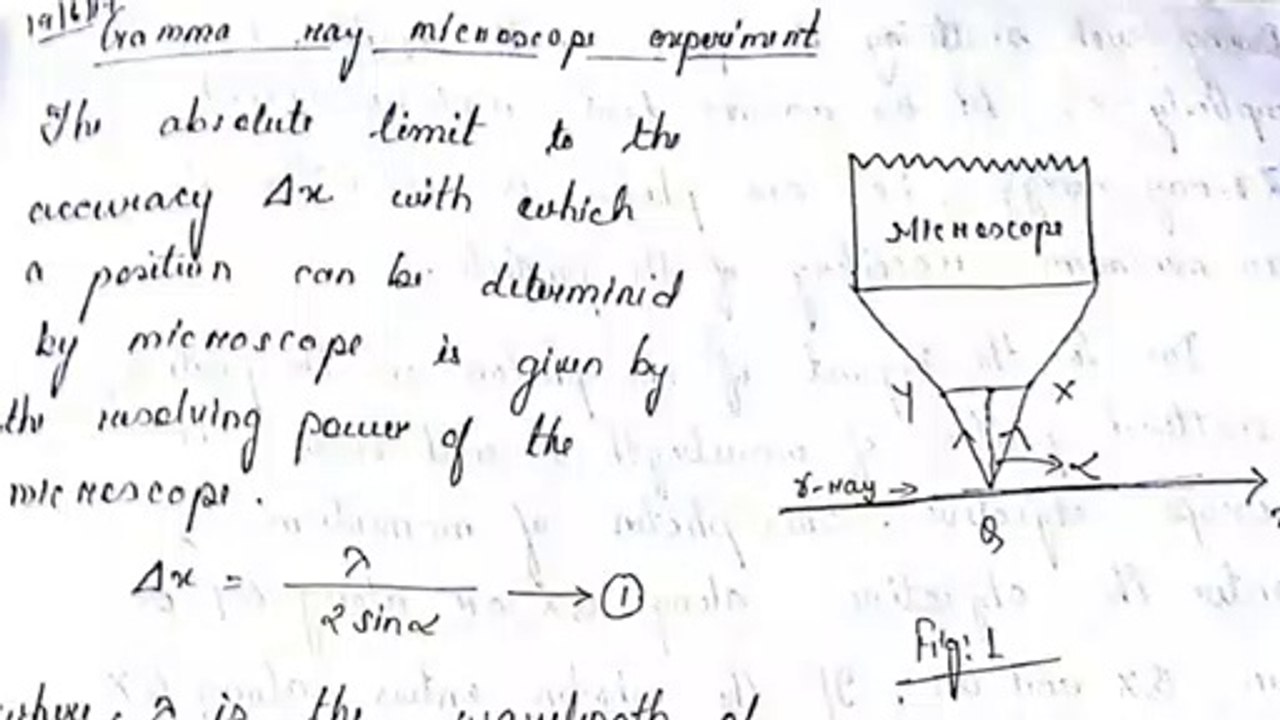 Gamma ray microscope experiment
The absolute limit to the
accuracy Δx with which
a position can be determinid
by microscope is given by
the resolving power of the
microscope.
Δx = λ / 2 sinα → ①
where, λ is the wavelength of
Microscope
Y X
α
γ-ray →
Q
Fig: 1